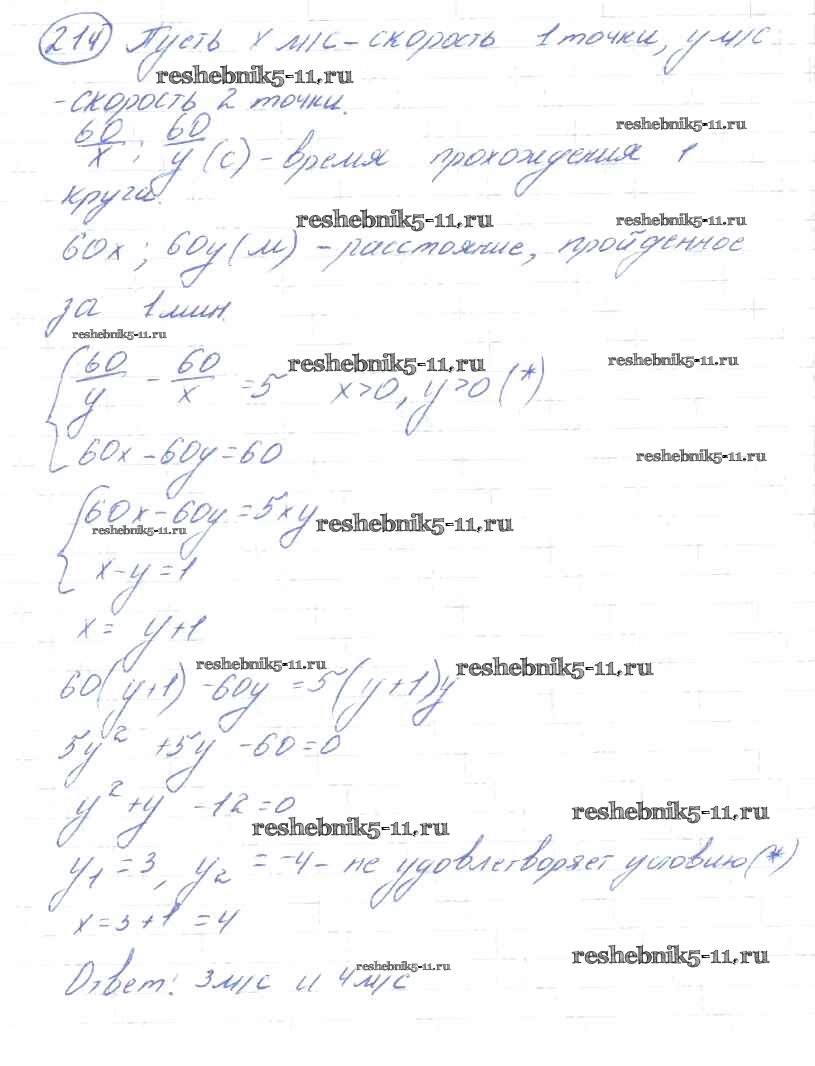 214 Пусть x м/с - скорость 1 точки, y м/с
reshebnik5-11.ru
- скорость 2 точки.
reshebnik5-11.ru
60/x ; 60/y (с) - время прохождения 1
круга.
reshebnik5-11.ru reshebnik5-11.ru
60x ; 60y (м) - расстояние, пройденное
за 1 мин.
reshebnik5-11.ru
reshebnik5-11.ru reshebnik5-11.ru
60/y - 60/x = 5 x>0, y>0 (*)
60x - 60y = 60
reshebnik5-11.ru
60x - 60y = 5xy
reshebnik5-11.ru reshebnik5-11.ru
x - y = 1
x = y+1
reshebnik5-11.ru reshebnik5-11.ru
60(y+1) - 60y = 5(y+1)y
5y² + 5y - 60 = 0
y² + y - 12 = 0
reshebnik5-11.ru
reshebnik5-11.ru
y₁ = 3, y₂ = -4 - не удовлетворяет условию (*)
x = 3 + 1 = 4
reshebnik5-11.ru
reshebnik5-11.ru
Ответ: 3 м/с и 4 м/с